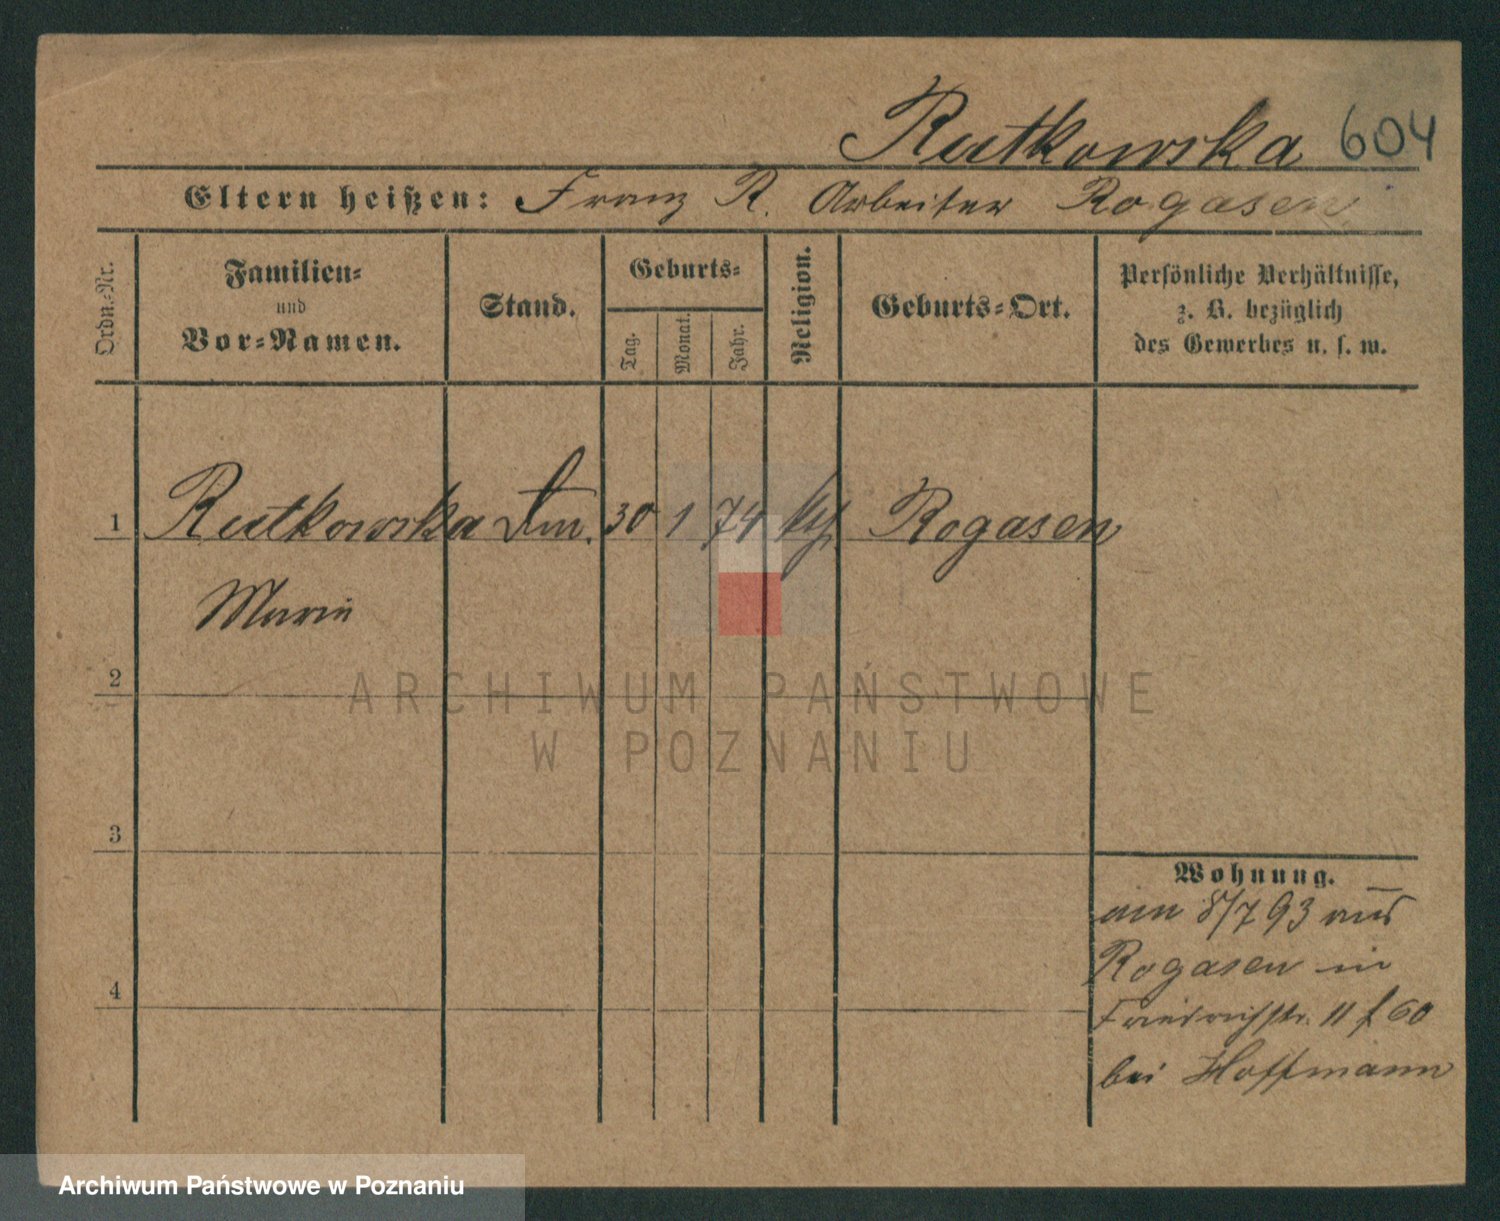 Rutkowska 604
Eltern heißen: Franz R. Arbeiter Rogasen
Ordn.-Nr.
Familien-
und
Vor-Namen.
Stand.
Geburts-
Tag.
Monat.
Jahr.
Religion.
Geburts-Ort.
Persönliche Verhältnisse,
z. B. bezüglich
des Gewerbes u. s. w.
1 Rutkowska 30 1 74 kth Rogasen
Marie
2
ARCHIWUM PAŃSTWOWE
W POZNANIU
3
Wohnung.
am 8/7 93 aus
Rogasen in
4
Friedrichstr. 11 f 60
bei Hoffmann
Archiwum Państwowe w Poznaniu